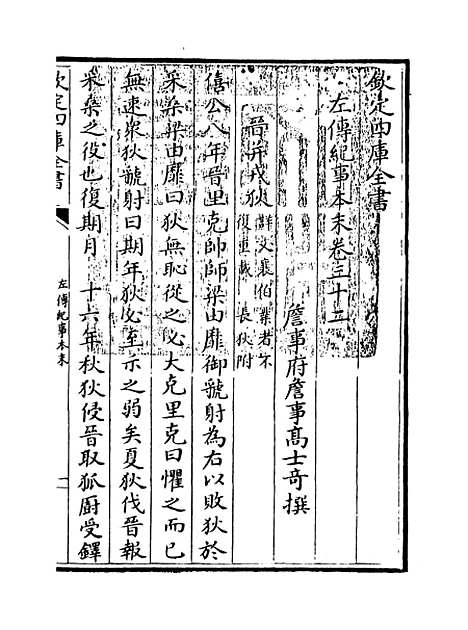 欽定四庫全書
左傳紀事本末卷三十二
詹事府詹事髙士奇撰
晉并戎狄
詳文襄伯業者不
復重載 長狄附
僖公八年晉里克帥師梁由靡御虢射為右以敗狄於
采桑梁由靡曰狄無恥從之必大克里克曰懼之而已
無速衆狄虢射曰期年狄必至示之弱矣夏狄伐晉報
采桑之役也復期月 十六年秋狄侵晉取狐廚受鐸
欽定四庫全書
左傳紀事本末
一